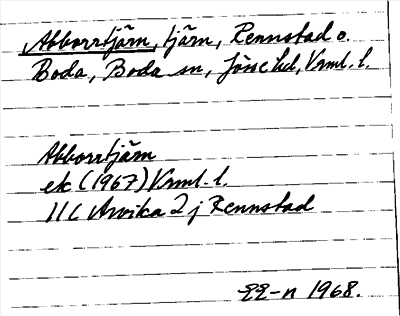 Abborrtjärn, tjärn, Rennstad o
Boda, Boda sn, Jösse hd, Vrml. l.
Abborrtjärn
ek (1967) Vrml. l.
11C Arvika 2 j Rennstad
1968.